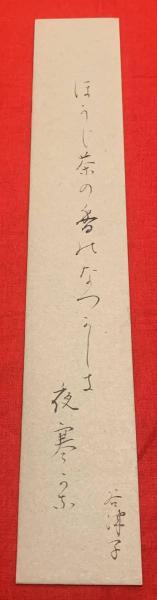 ほうじ茶の香のなつかしき
夜寒かな
谷津子